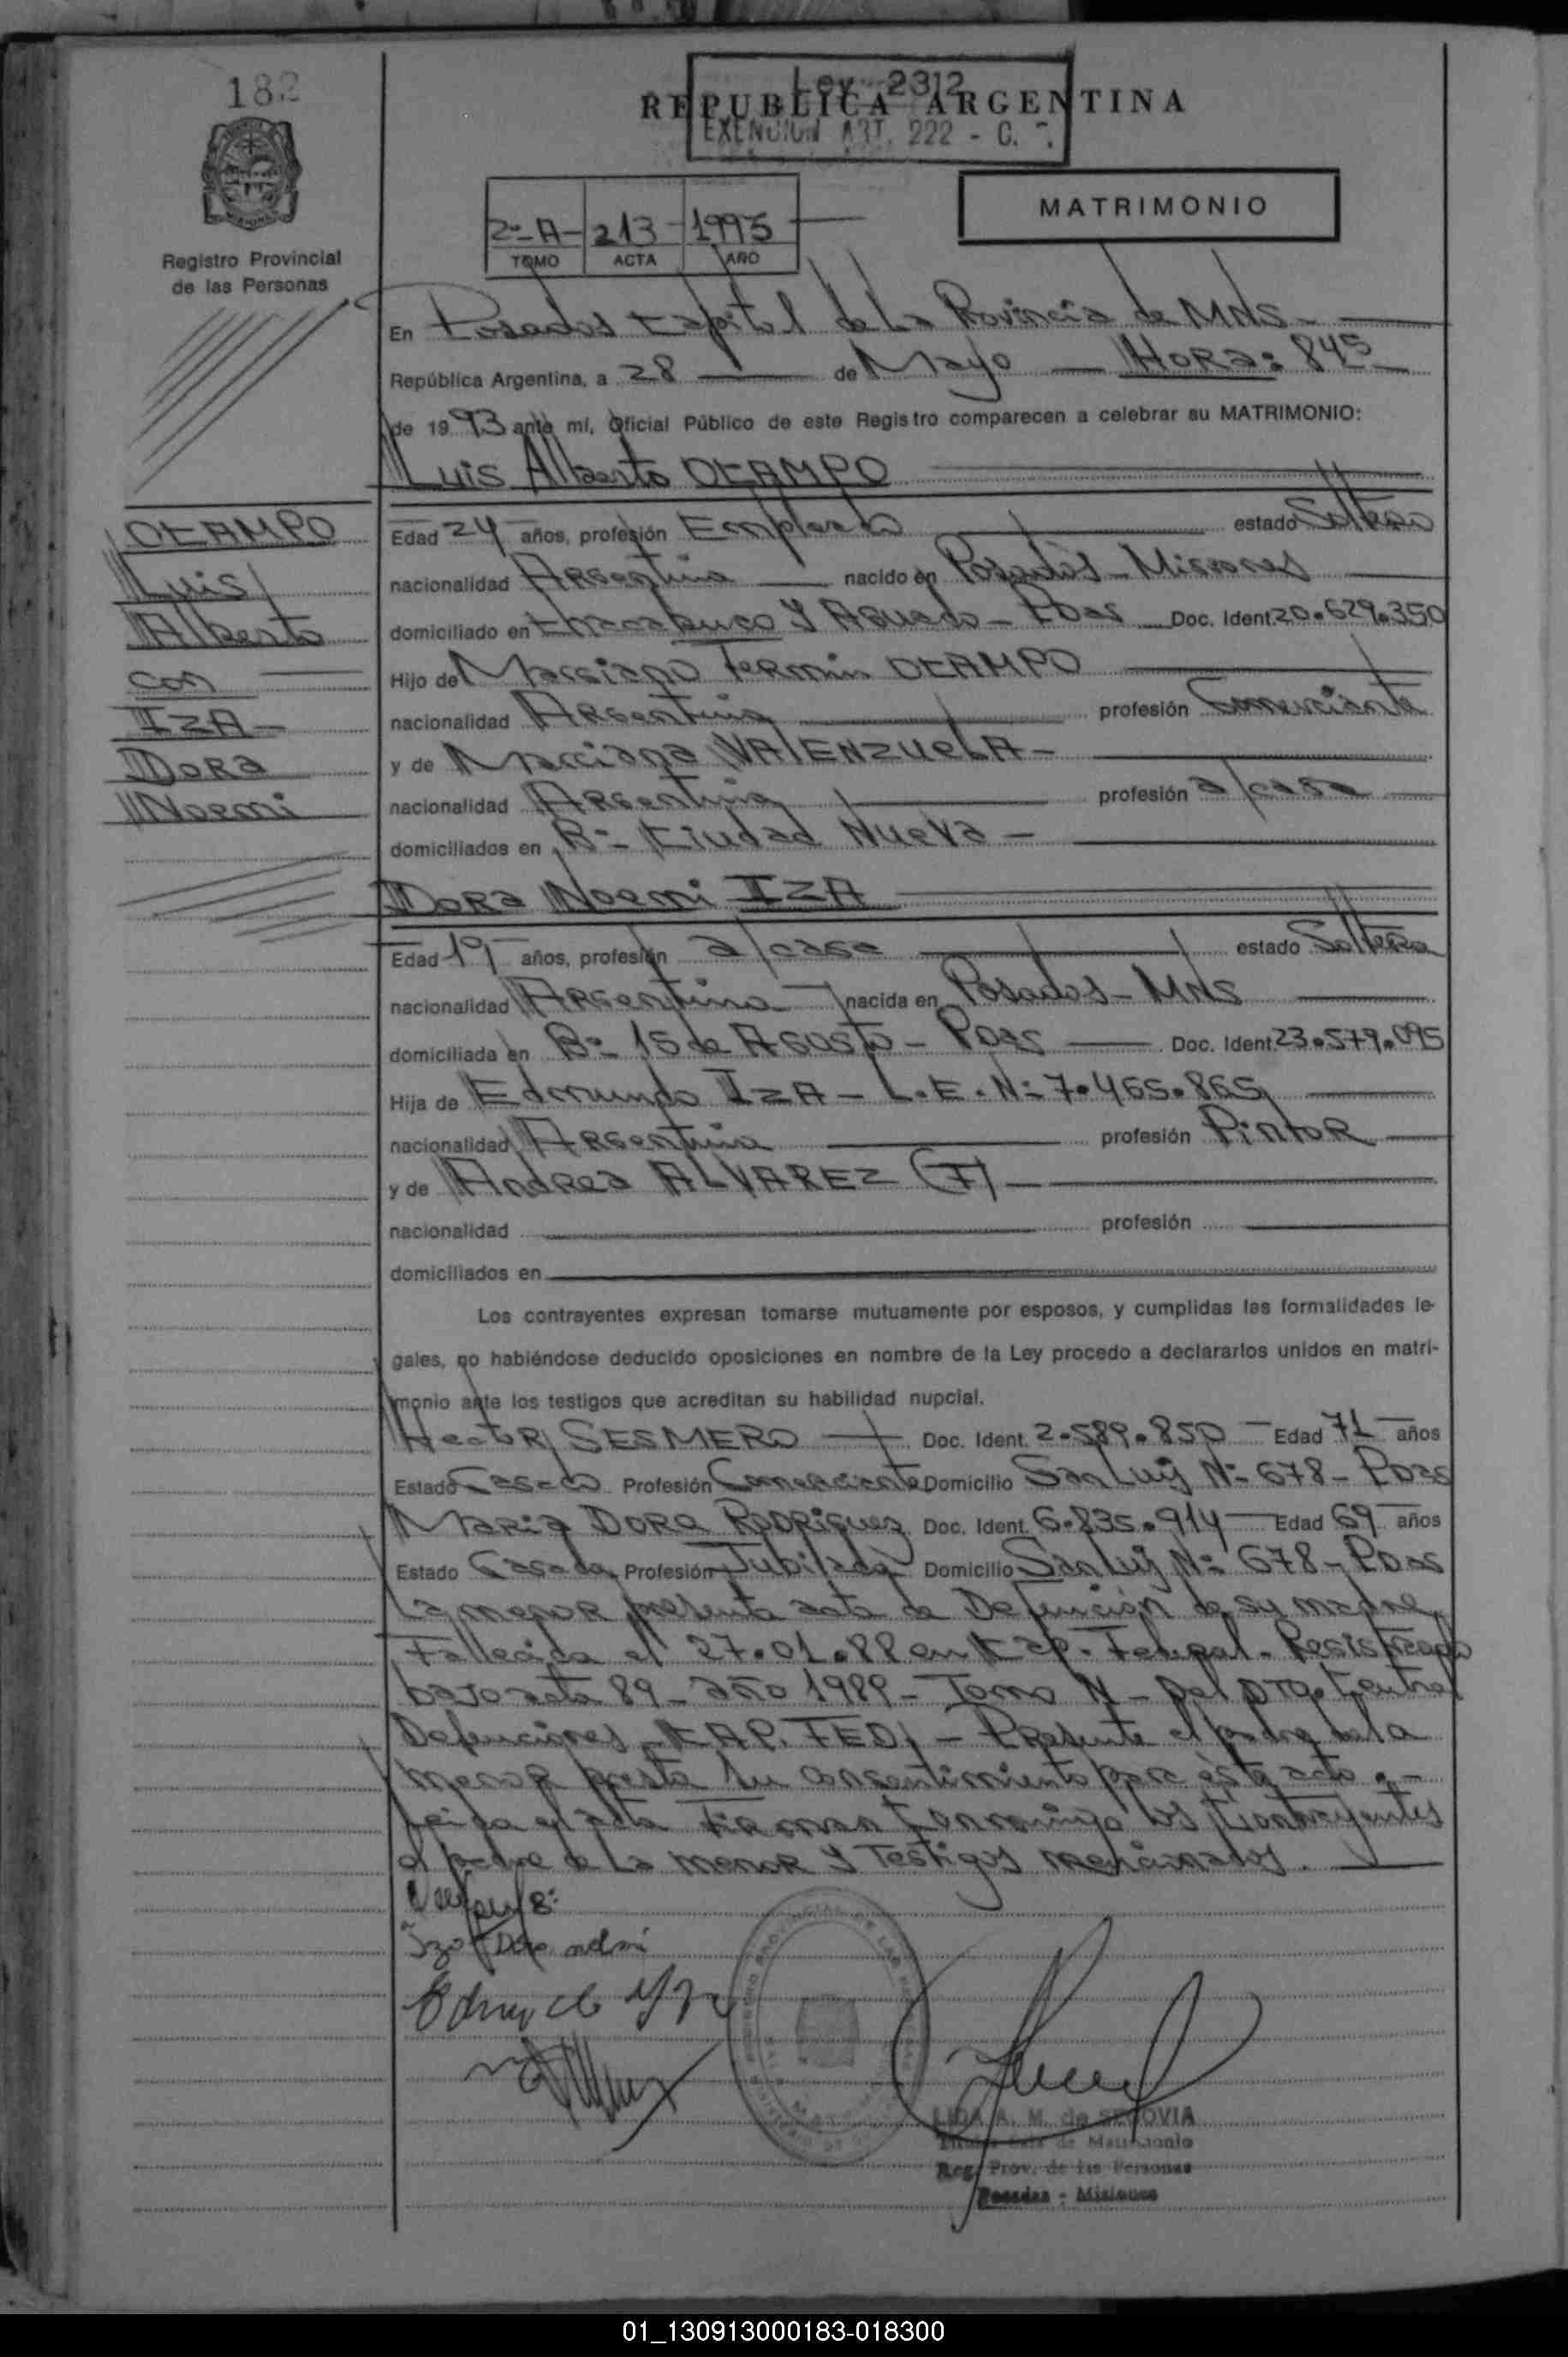 182
Ley 2312
REPUBLICA ARGENTINA
EXENCION ART. 222 - C.
MATRIMONIO
2º-A- 213 - 1993
TOMO ACTA AÑO
Registro Provincial
de las Personas
En Posadas Capital de La Provincia de Mnes -
República Argentina, a 28 de Mayo Hora: 845
de 1993 ante mí, Oficial Público de este Registro comparecen a celebrar su MATRIMONIO:
Luis Alberto OCAMPO
OCAMPO
Luis
Alberto
con
IZA -
Dora
Noemi
Edad 24 años, profesión Empleado estado Soltero
nacionalidad Argentina nacido en Posadas - Misiones
domiciliado en Chacabuco Y Aguado - Pdas Doc. Ident 20.629.350
Hijo de Marciano Fermin OCAMPO
nacionalidad Argentina profesión Comerciante
y de Marciana VALENZUELA -
nacionalidad Argentina profesión a/casa
domiciliados en Bº - Ciudad Nueva -
Dora Noemi IZA
Edad 19 años, profesión a/casa estado Soltera
nacionalidad Argentina nacida en Posadas - Mnes
domiciliada en Bº - 15 de Agosto - Pdas Doc. Ident 23.579.095
Hija de Edmundo IZA - L.E. Nº 7.465.865
nacionalidad Argentina profesión Pintor
y de Andrea ALVAREZ (F) -
nacionalidad profesión
domiciliados en
Los contrayentes expresan tomarse mutuamente por esposos, y cumplidas las formalidades le-
gales, no habiéndose deducido oposiciones en nombre de la Ley procedo a declararlos unidos en matri-
monio ante los testigos que acreditan su habilidad nupcial.
Hector SESMERO Doc. Ident. 2.589.850 Edad 71 años
Estado Casado Profesión Comerciante Domicilio San Luis Nº 678 - Pdas
Maria Dora Rodriguez Doc. Ident. 6.835.914 Edad 69 años
Estado Casada Profesión Jubilada Domicilio San Luis Nº 678 - Pdas
La menor presenta acta de Defunción de su madre,
Fallecida el 27.01.88 en Cap. Federal - Registrada
bajo acta 89 - año 1989 - Tomo N - Del Dto. Central
Defunciones - CAP. FED. - Presente el padre de la
menor presta su consentimiento para éste acto. -
Leida el acta Firman conmigo los Contrayentes
el padre de La menor Y Testigos mencionados.
Iza Dora
Edmundo Iza
LIDA A. M. de SEGOVIA
de Matrimonio
Reg. Prov. de las Personas
Posadas - Misiones
01_130913000183-018300